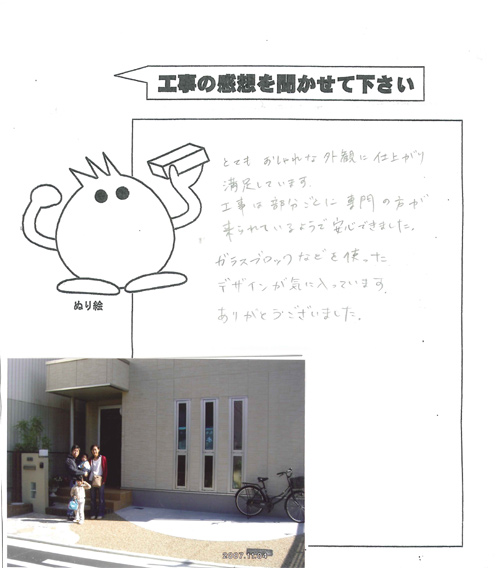 工事の感想を聞かせて下さい
とても おしゃれな 外観に 仕上がり
満足しています.
工事は部分ごとに 専門の方が
来られているようで 安心できました.
ガラスブロックなどを使った
デザインが気に入っています.
ありがとうございました.
ぬり絵
2007.11.04